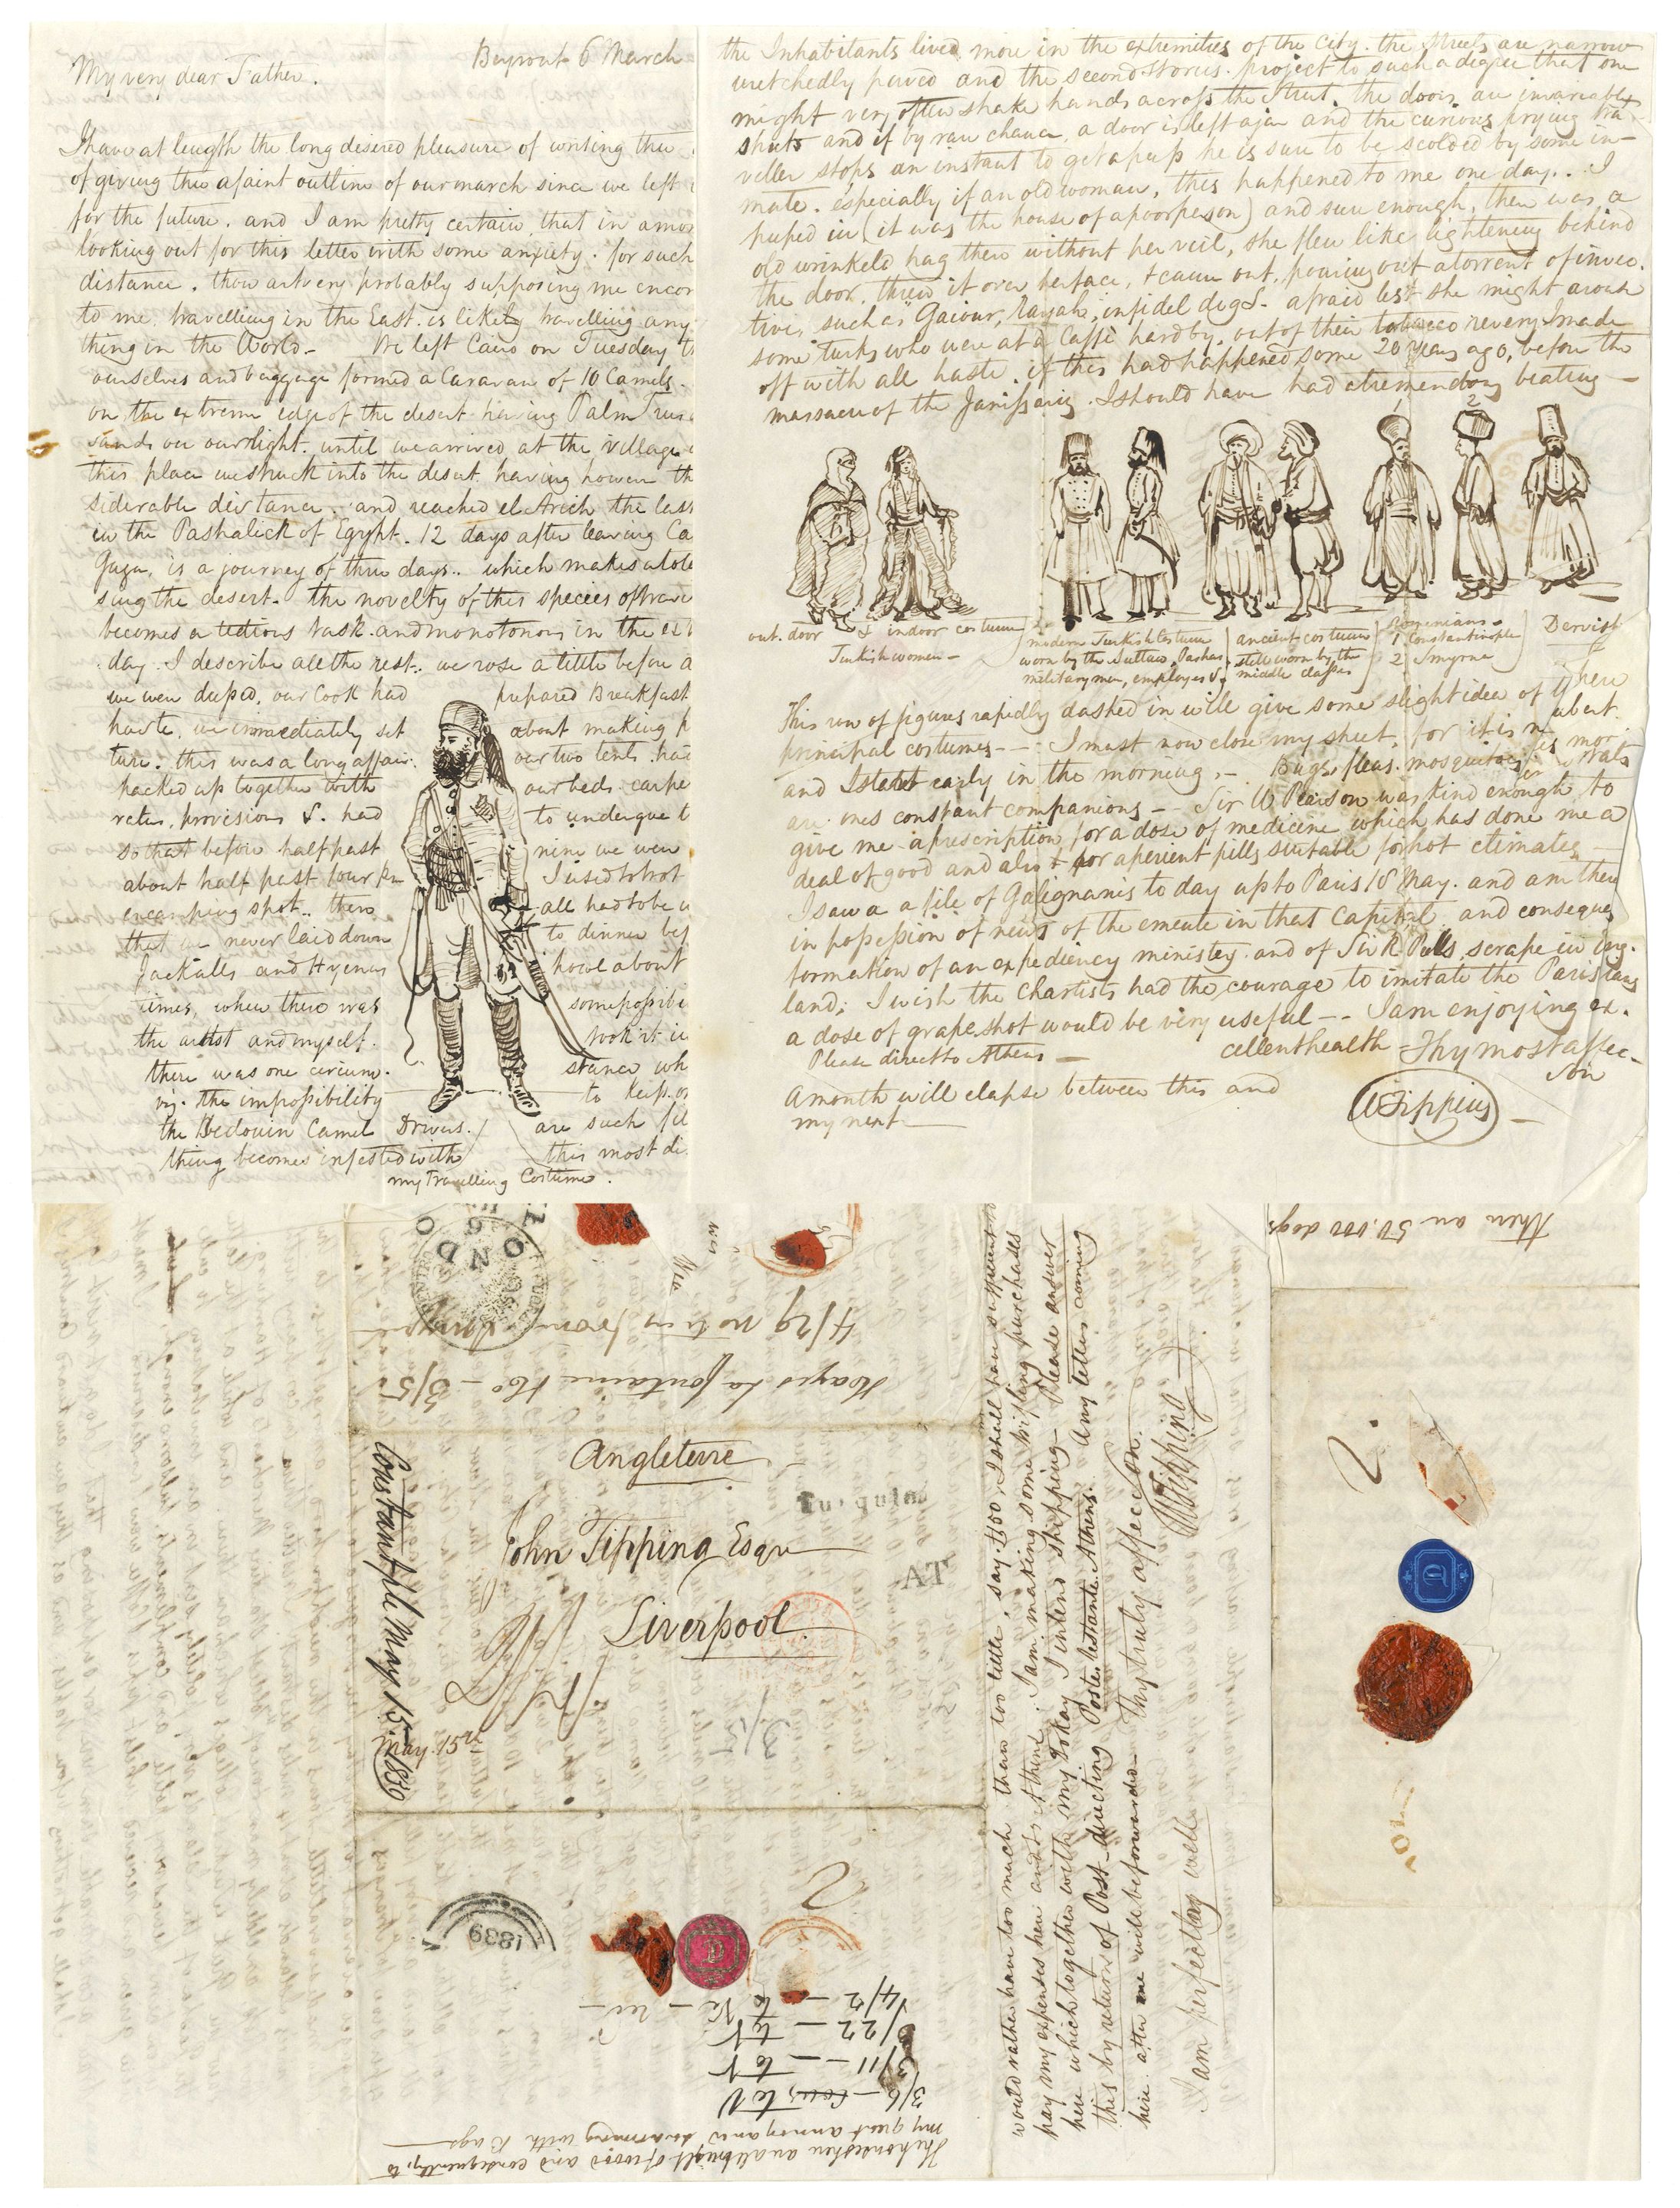 Beyrout 6 March
My very dear Father.
I have at length the long desired pleasure of writing thee
of giving thee a faint outline of our march since we left
for the future. and I am pretty certain that in amos
looking out for this letter with some anxiety. for such
distance. thou art very probably supposing me encor
to me, travelling in the East is likely travelling any
thing in the World.- We left Cairo on Tuesday th
ourselves and baggage formed a Caravan of 10 Camels.
on the extreme edge of the desert having Palm Trees
sands on our right. until we arrived at the village
this place we struck into the desert having however th
siderable distance. and reached el Arich the last
in the Pashalick of Egypt. 12 days after leaving Ca
Gaza, is a journey of three days.. which makes a tole
sing the desert. the novelty of this species of trave
becomes a tedious task. and monotonous in the ext
day. I describe all the rest.. we rose a little before d
we were dressed, our Cook had prepared Breakfast
haste, we immediately set about making p
ture. this was a long affair. our two tents. had
packed up together with our beds. carpe
provisions &. had to undergue t
so that before half past nine we were
about half past four pm I used to trot
encamping spot.. there all had to be u
that are never laid down to dinner bef
Jackalls and Hyenas howl about
times, when there was some possibi
the artist and myself. took it in
there was one circum- stance wh
viz. the impossibility to keep or
the Bedouin Camel Drivers. are such fil
thing becomes infested with this most di
my Travelling Costume.
the Inhabitants lived more in the extremities of the City. the streets are narrow
wretchedly paved and the second stories. project to such a degree that one
might very often shake hands across the street. the doors are invariably
shut and if by rare chance a door is left ajar and the curious prying tra-
veller stops an instant to get a peep he is sure to be scolded by some in-
mate. especially if an old woman, this happened to me one day.. I
peeped in (it was the house of a poor person) and sure enough, there was a
old wrinkeld hag there without her veil, she flew like lightening behind
the door, threw it over her face, & came out, pouring out a torrent of invec.
tives such as Gaiour, Rayah, infidel dog &. afraid lest she might arouse
some turks who were at a Caffè hard by. out of their tobacco revery I made
off with all haste. if this had happened some 20 years ago, before the
massacre of the Janissaries. I should have had a tremendous beating -
out. door & indoor costume
Turkish women -
modern Turkish Costume
worn by the Sultan, Pashas,
military men, employes &.
ancient costume
still worn by the
middle classes
Armenians -
1 Constantinople
2 Smyrna
Dervish
1
2
This row of figures rapidly dashed in will give some slight idea of the
principal costumes -- I must now close my sheet, for it is
and I start early in the morning. - Bugs, fleas. mosquitoes rats
are ones constant companions - Sir W Pearson was kind enough to
give me a prescription for a dose of medicine which has done me a
deal of good and also for aperient pills suitable for hot climates -
I saw a file of Galignanis to day up to Paris 18 May. and am there
in possession of news of the emeute in that Capital and conseque
formation of an expediency ministry. and of Sir R Peels scrape in Eng.
land; I wish the Chartists had the courage to imitate the Parisians
a dose of grape shot would be very useful -- I am enjoying ex.
cellent health - Thy most affec-
son
Please direct to Athens -
A month will elapse between this and
my next -
W Tipping
4/29 not in from Smyrna
Hayes La Fontaine & Co - 3/5
Angleterre
John Tipping Esqr
Liverpool
Turquie
AT
Constantple May 15. 1839
May. 15th
1839
3/6
3/11
3/22
4/2
The houses here are all built of wood and consequently, to
my great annoyance swarming with Bugs -
would rather have too much than too little, say £100. I shall have sufficient to
pay my expenses here and at Athens; I am making some trifling purchases
here which together with my Tokay I intend shipping - Please answer
this by return of Post - directing Poste restante. Athens. Any letters coming
here after me will be forwarded - Thy truly affec son.
I am perfectly well
W Tipping
there are 50.000 dogs
2.
D
D